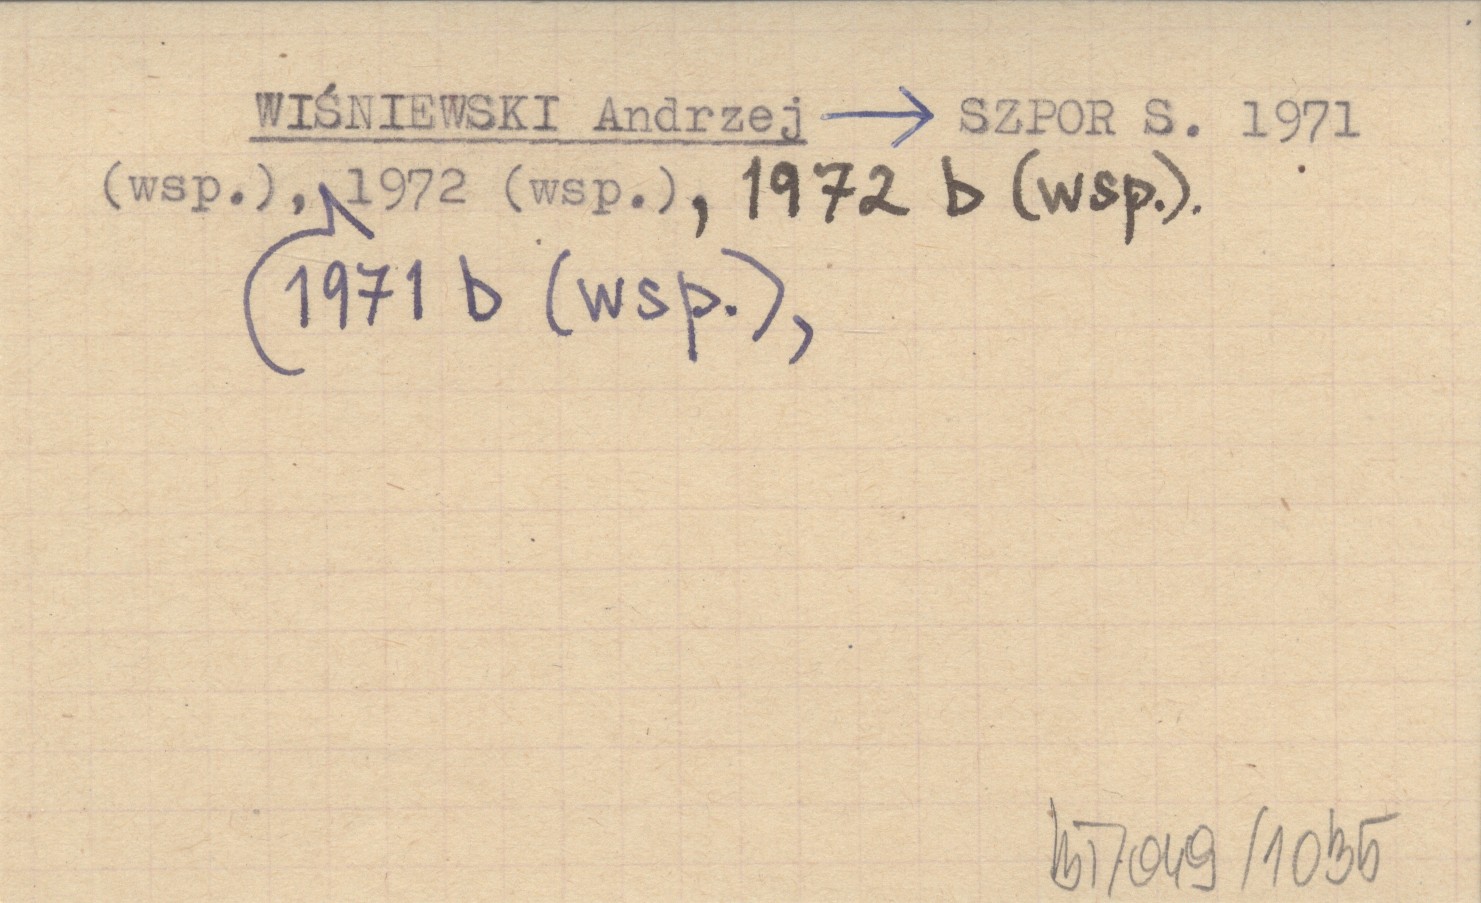 WIŚNIEWSKI Andrzej → SZPOR S. 1971
(wsp.), 1972 (wsp.), 1972 b (wsp.).
1971 b (wsp.),
/1035